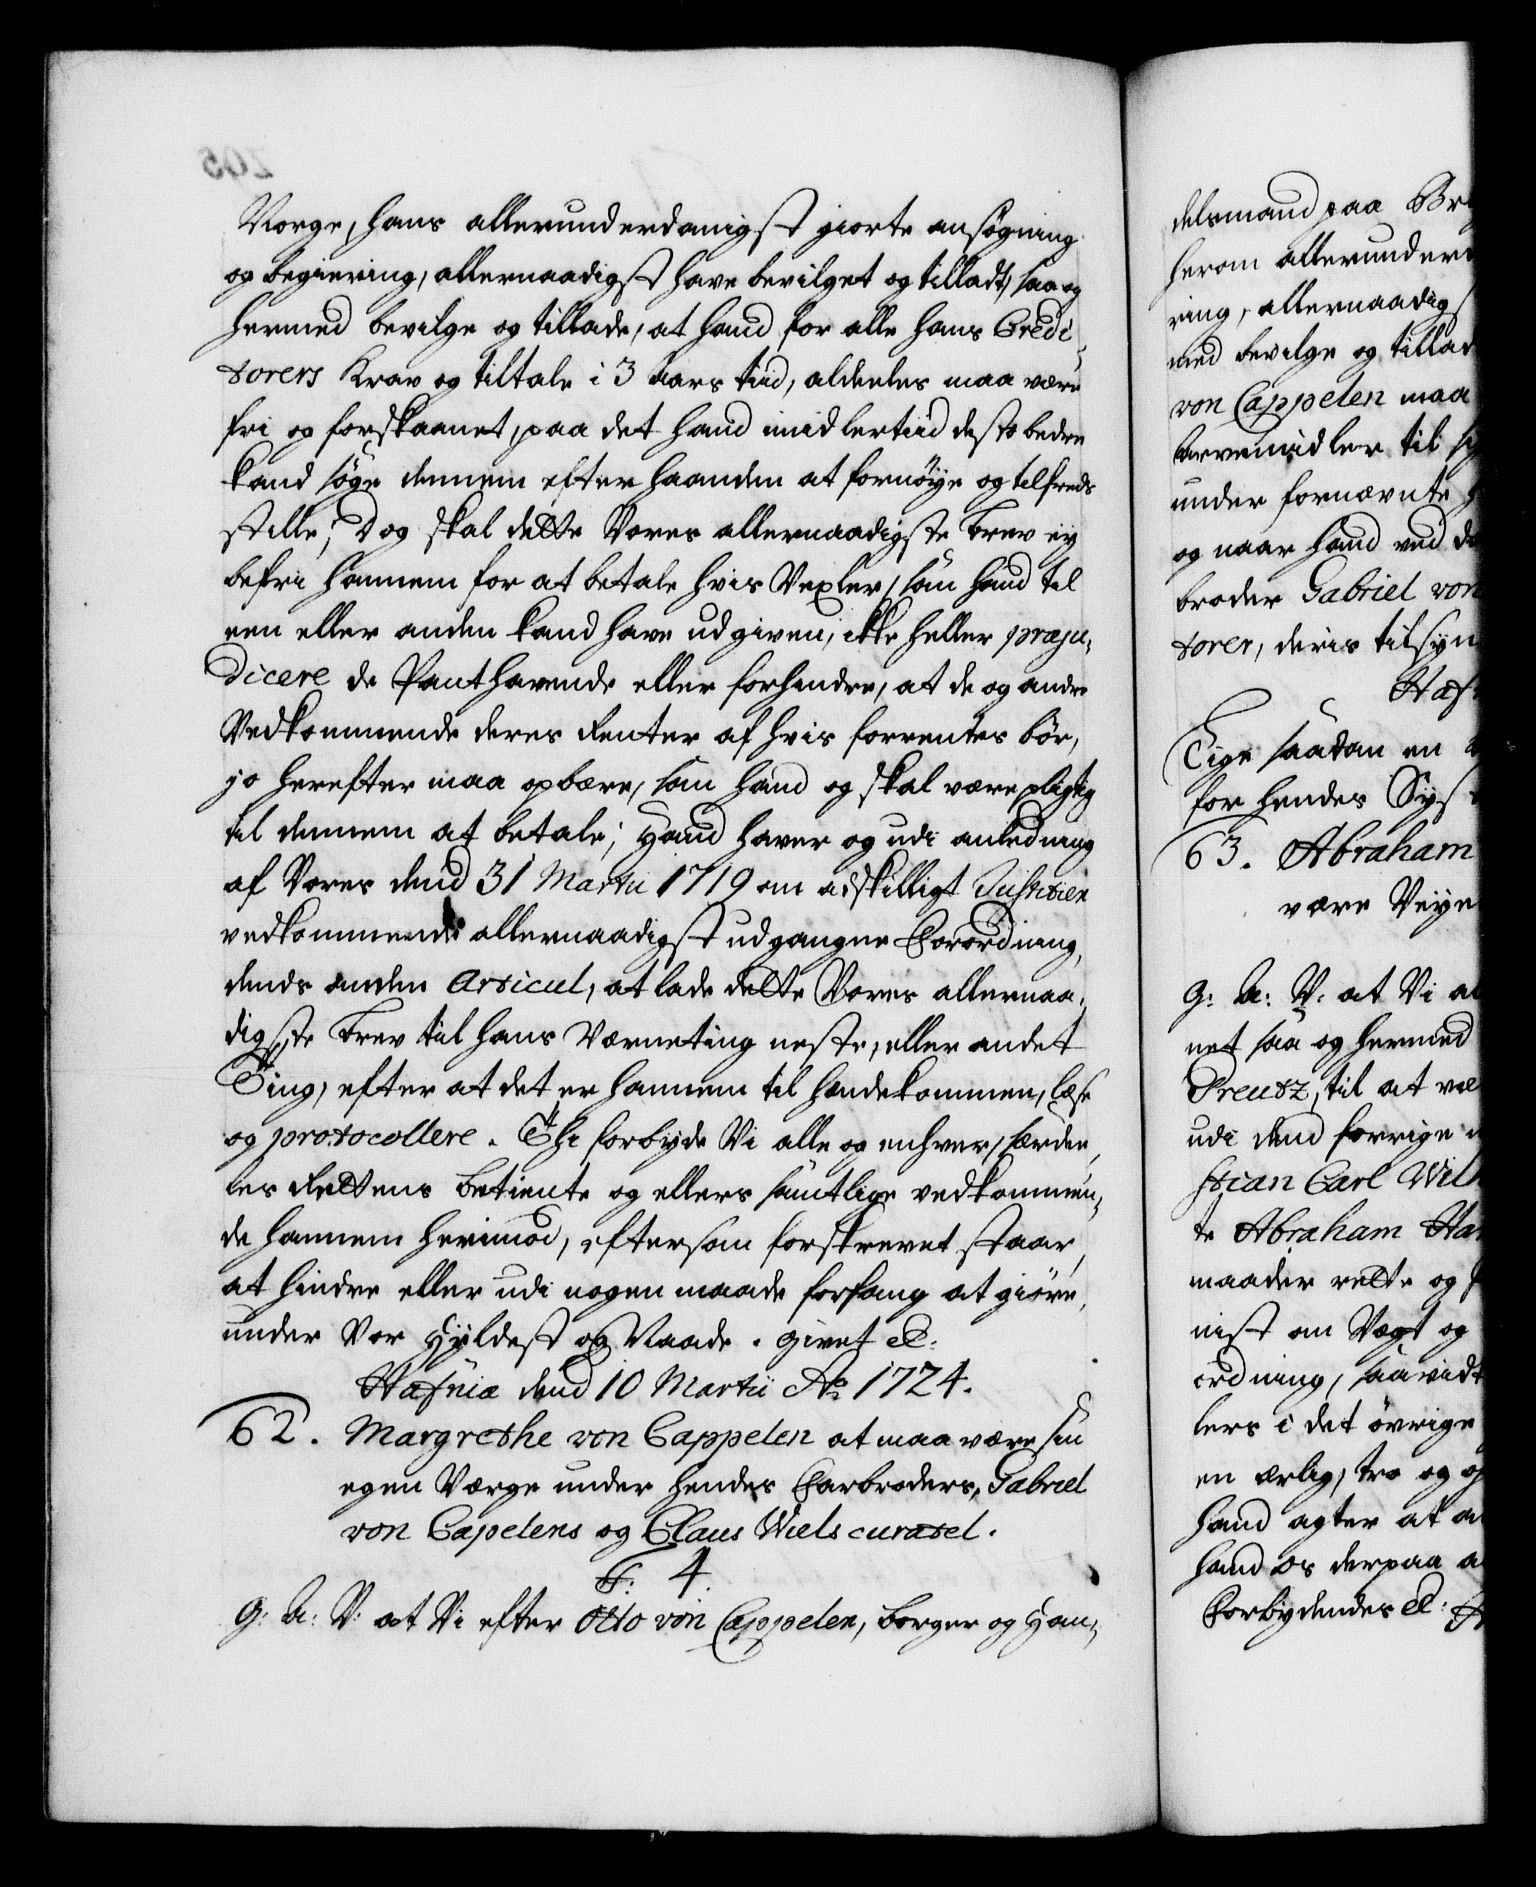 Norge, hans allerunderdanigst giorte ansøgning
og begiering, allernaadigst have bevilget og tilladt, saa og
hermed bevilge og tillade, at hand for alle hans Credi-
torers Krav og tiltale i 3 aars tiid, aldeeles maa være
fri og forskaanet, paa det hand imidlertiid desto bedre
kand søge dennem efter haanden at fornøye og tilfreds
stille; Dog skal dette Vores allernaadigste brev ey
befri hannem for at betale hvis Vexler, som hand til
een eller anden kand have udgiven, ikke heller præju-
dicere de Panthavende eller forhindre, at de og andre
Vedkommende deres Renter af hvis forrentes bør,
jo herefter maa opbære, som hand og skal være pligtig
til dennem at betale; Hand haver og udi anledning
af Vores dend 31 Martii 1719 om adskilligt Justitien
vedkommende allernaadigst udgangne Forordning,
dends anden Articul, at lade dette Vores allernaa-
digste brev til hans Værneting neste, eller andet
Ting, efter at det er hannem til hænde kommen, læse
og protocollere. Thi forbyde Vi alle og enhver, særdee-
les Rettens betiente og ellers samtlige vedkommen-
de hannem herimod, eftersom forskrevet staar,
at hindre eller udi nogen maade forfang at giøre,
under Vor Hyldest og Naade. Givet &c.
Hafniæ dend 10 Martii Ao 1724.
62. Margrethe von Cappelen at maa være sin
egen Værge under hendes Farbroders, Gabriel
von Capelens og Claus Wiels curatel.
F: 4
G: A: V: at Vi efter Otto von Cappelen, borger og Han-
delsmand paa
herom
ring, allernaadigst
med bevilge og
von Cappelen maa
arvemidler til
under fornævnte
og naar hand ved
broder Gabriel von
torer, deris tilsyn
Lige saadan en
for hendes
63. Abraham
være
G: A: V: at Vi
net saa og hermed
Preutz, til at
udi dend forrige
stian Carl
te Abraham
maader rette og
nist om Vegt og
ordning, saavidt
lers i det øvrige
en ærlig, tro og
hand agter at
hand os derpaa
Forbydendes &c: